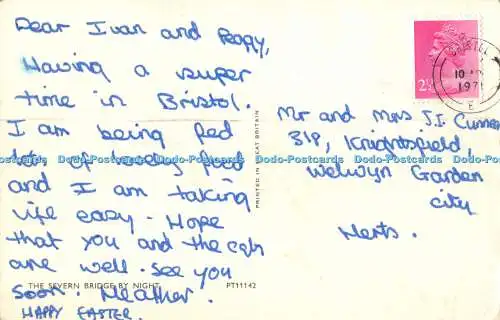 Dear Ivan and Peggy,
Having a super
time in Bristol.
I am being fed
lots of lovely food
and I am taking
life easy - Hope
that you and the cats
are well - see you
soon. Heather.
HAPPY EASTER.
THE SEVERN BRIDGE BY NIGHT
PT11142
PRINTED IN GREAT BRITAIN
2½
BRISTOL
10
1971
E
Mr and Mrs J.I.
318, Knightsfield,
Welwyn Garden
City
Herts.
Dodo-Postcards Dodo-Postcards Dodo-Postcards Dodo-Postcards Dodo-Postcards